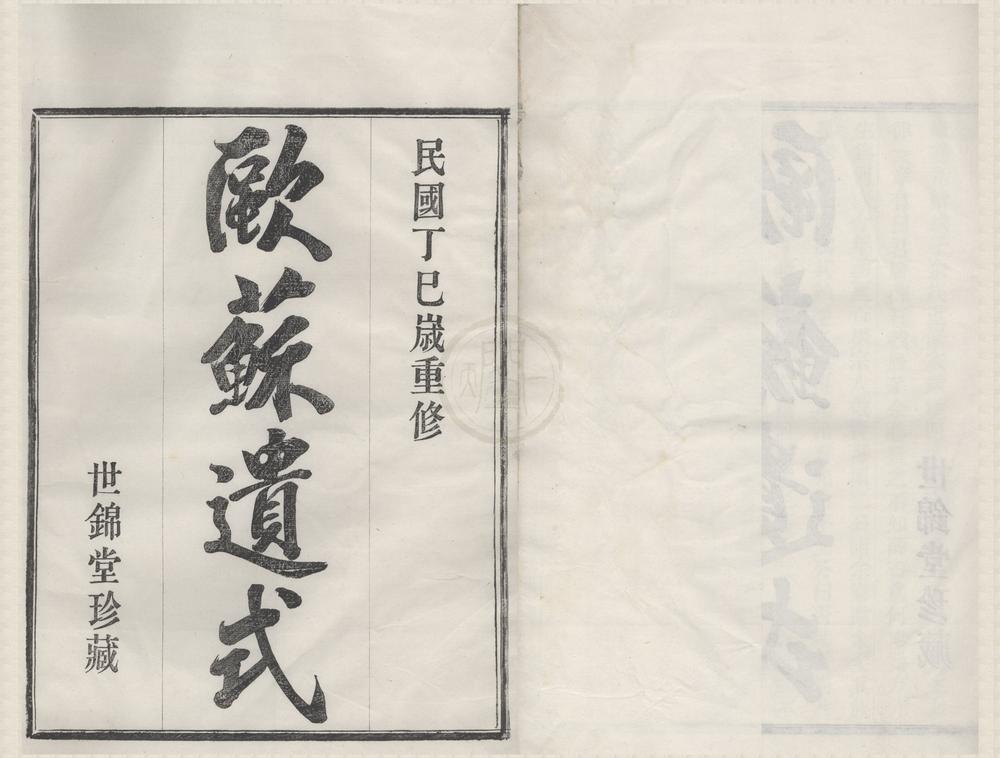 民國丁巳歲重修
歐蘇遺式
世錦堂珍藏